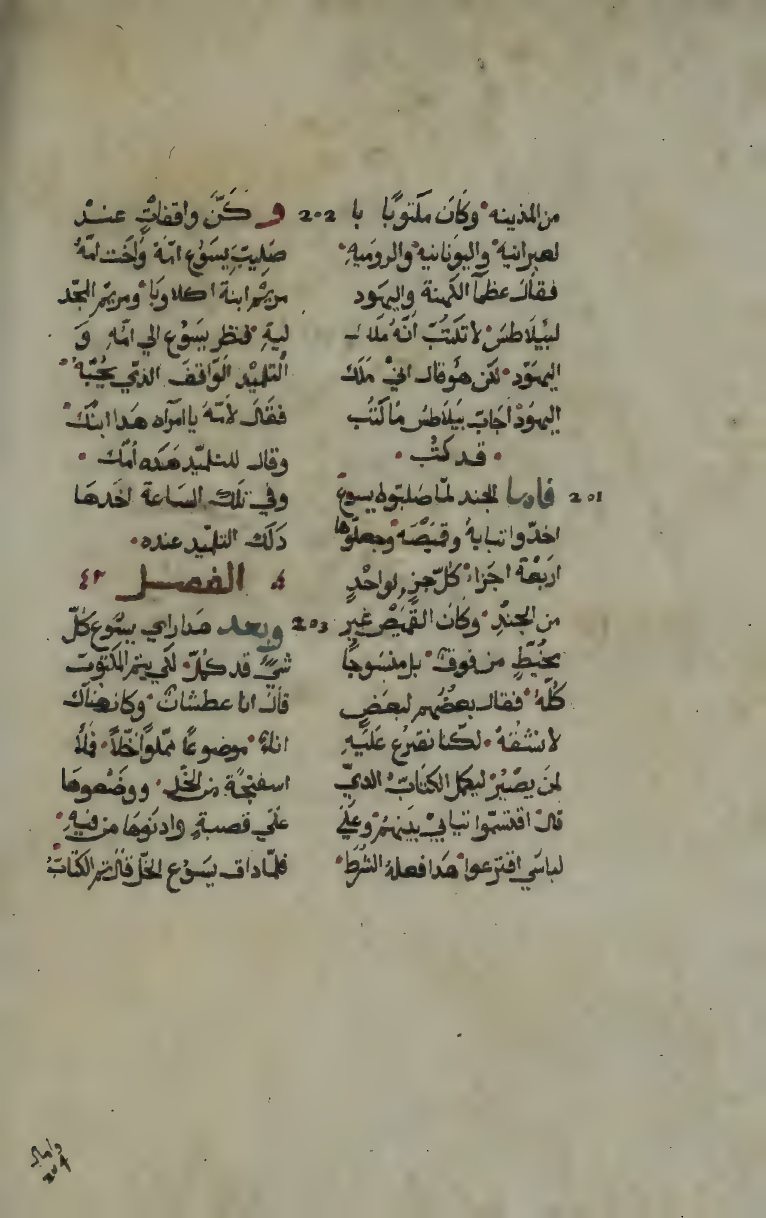 من المدينه وكان مكتوبًا با
لعبرانية واليونانية والرومية
فقال عظما الكهنة واليهود
لبيلاطس لا تكتب انه ملك
اليهود لكن هو قال اني ملك
اليهود اجاب بيلاطس ما كتب
قد كتب
201 فاما الجند لما صلبوا يسوع
اخدوا تيابه وقميصه وجعلوها
اربعة اجزاء كل جز لواحد
من الجند وكان القميص غير
مخيط من فوق بل منسوجًا
كله فقال بعضهم لبعض
لا نشقه لكنا نقترع عليه
لمن يصير ليكمل الكتاب الدي
قال اقتسموا تيابي بينهم وعلي
لباسي اقترعوا هدا فعله الشرط
202 و كنّ واقفات عند
صليب يسوع امه واخت امه
مريم ابنة اكلاوبا ومريم المجد
لية فنظر يسوع الي امه و
التلميد الواقف الدي يحبه
فقال لامه يا امراه هدا ابنك
وقال للتلميد هده امك
وفي تلك الساعة اخدها
دلك التلميد عنده
الفصل ٤٢
203 وبعد هدا راي يسوع كل
شي قد كمل لكي يتم المكتوب
قال انا عطشان وكان هناك
اناء موضوعًا مملواً خلاً فملا
اسفنجة من الخل ووضعوها
علي قصبة وادنوها من فيه
فلما داق يسوع الخل قال تم الكتاب
204